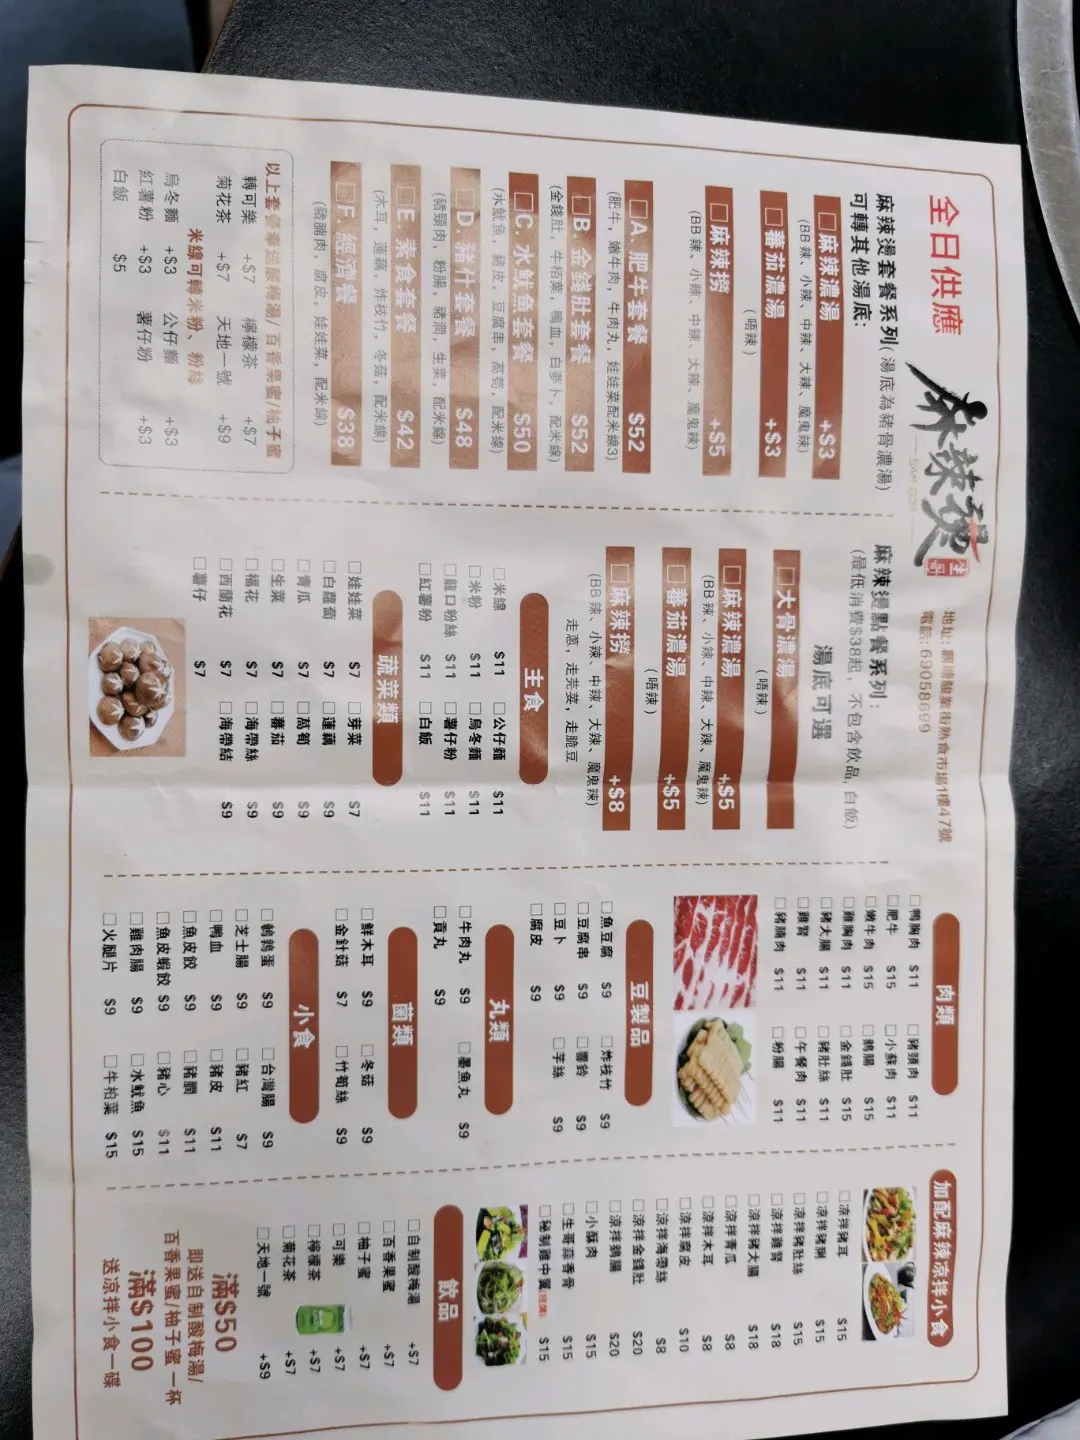 全日供應
麻辣燙
生哥
SAM GOR
地址: 觀塘駿業街熟食市場1樓47號
電話: 69058699
麻辣燙套餐系列(湯底為豬骨濃湯)
可轉其他湯底:
□麻辣濃湯 +$3
(BB辣、小辣、中辣、大辣、魔鬼辣)
□蕃茄濃湯 +$3
(唔辣)
□麻辣撈 +$5
(BB辣、小辣、中辣、大辣、魔鬼辣)
□A. 肥牛套餐 $52
(肥牛, 嫩牛肉, 牛肉丸, 娃娃菜配米線3)
□B. 金錢肚套餐 $52
(金錢肚, 牛栢葉, 鴨血, 白夢卜, 配米線)
□C. 水魷魚套餐 $50
(水魷魚, 豬皮, 豆腐串, 萵筍, 配米線)
□D. 豬什套餐 $48
(豬頸肉, 粉腸, 豬潤, 生菜, 配米線)
□E. 素食套餐 $42
(木耳, 蓮藕, 炸枝竹, 冬菇, 配米線)
□F. 經濟餐 $38
(豬腩肉, 腐皮, 娃娃菜, 配米線)
以上套餐奉送酸梅湯/百香果蜜/柚子蜜
轉可樂 +$7 檸檬茶 +$7
菊花茶 +$7 天地一號 +$9
米線可轉米粉、粉絲
烏冬麵 +$3 公仔麵 +$3
紅薯粉 +$3 薯仔粉 +$3
白飯 $5
麻辣燙點餐系列:
(最低消費$38起, 不包含飲品, 白飯)
湯底可選
□大骨濃湯
(唔辣)
□麻辣濃湯 +$5
(BB辣、小辣、中辣、大辣、魔鬼辣)
□蕃茄濃湯 +$5
(唔辣)
□麻辣撈 +$8
(BB辣、小辣、中辣、大辣、魔鬼辣)
走蔥, 走芫荽, 走脆豆
主食
□米線 $11 □公仔麵 $11
□米粉 $11 □烏冬麵 $11
□龍口粉絲 $11 □薯仔粉 $11
□紅薯粉 $11 □白飯 $11
蔬菜類
□娃娃菜 $7 □芽菜 $7
□白蘿蔔 $7 □蓮藕 $9
□青瓜 $7 □萵筍 $9
□生菜 $7 □蕃茄 $9
□福花 $7 □海帶絲 $9
□西蘭花 $7 □海帶結 $9
□薯仔 $7
肉類
□鴨胸肉 $11 □豬頸肉 $11
□肥牛 $15 □小蘇肉 $11
□嫩牛肉 $15 □鵝腸 $15
□雞胸肉 $11 □金錢肚 $15
□豬大腸 $11 □豬肚絲 $11
□雞腎 $11 □午餐肉 $11
□豬腩肉 $11 □粉腸 $11
豆製品
□魚豆腐 $9 □炸枝竹 $9
□豆腐串 $9 □響鈴 $9
□豆卜 $9 □芋絲 $9
□腐皮 $9
丸類
□牛肉丸 $9 □墨魚丸 $9
□貢丸 $9
菌類
□鮮木耳 $9 □冬菇 $9
□金針菇 $7 □竹筍絲 $9
小食
□鵪鶉蛋 $9 □台灣腸 $9
□芝士腸 $9 □豬紅 $7
□鴨血 $9 □豬皮 $11
□魚皮餃 $9 □豬膶 $11
□魚皮蝦餃 $9 □豬心 $11
□雞肉腸 $9 □水魷魚 $15
□火腿片 $9 □牛柏葉 $15
加配麻辣凉拌小食
□凉拌豬耳 $15
□凉拌豬脷 $15
□凉拌豬肚絲 $15
□凉拌雞腎 $18
□凉拌豬大腸 $18
□凉拌青瓜 $8
□凉拌木耳 $8
□凉拌腐皮 $10
□凉拌海帶絲 $8
□凉拌金錢肚 $20
□凉拌鵝腸 $20
□小酥肉 $15
□生哥蒜香骨 $15
□秘制雞中翼 $15
飲品
□自制酸梅湯 +$7
□百香果蜜 +$7
□柚子蜜 +$7
□可樂 +$7
□檸檬茶 +$7
□菊花茶 +$7
□天地一號 +$9
滿$50
即送自制酸梅湯/
百香果蜜/柚子蜜一杯
滿$100
送凉拌小食一碟